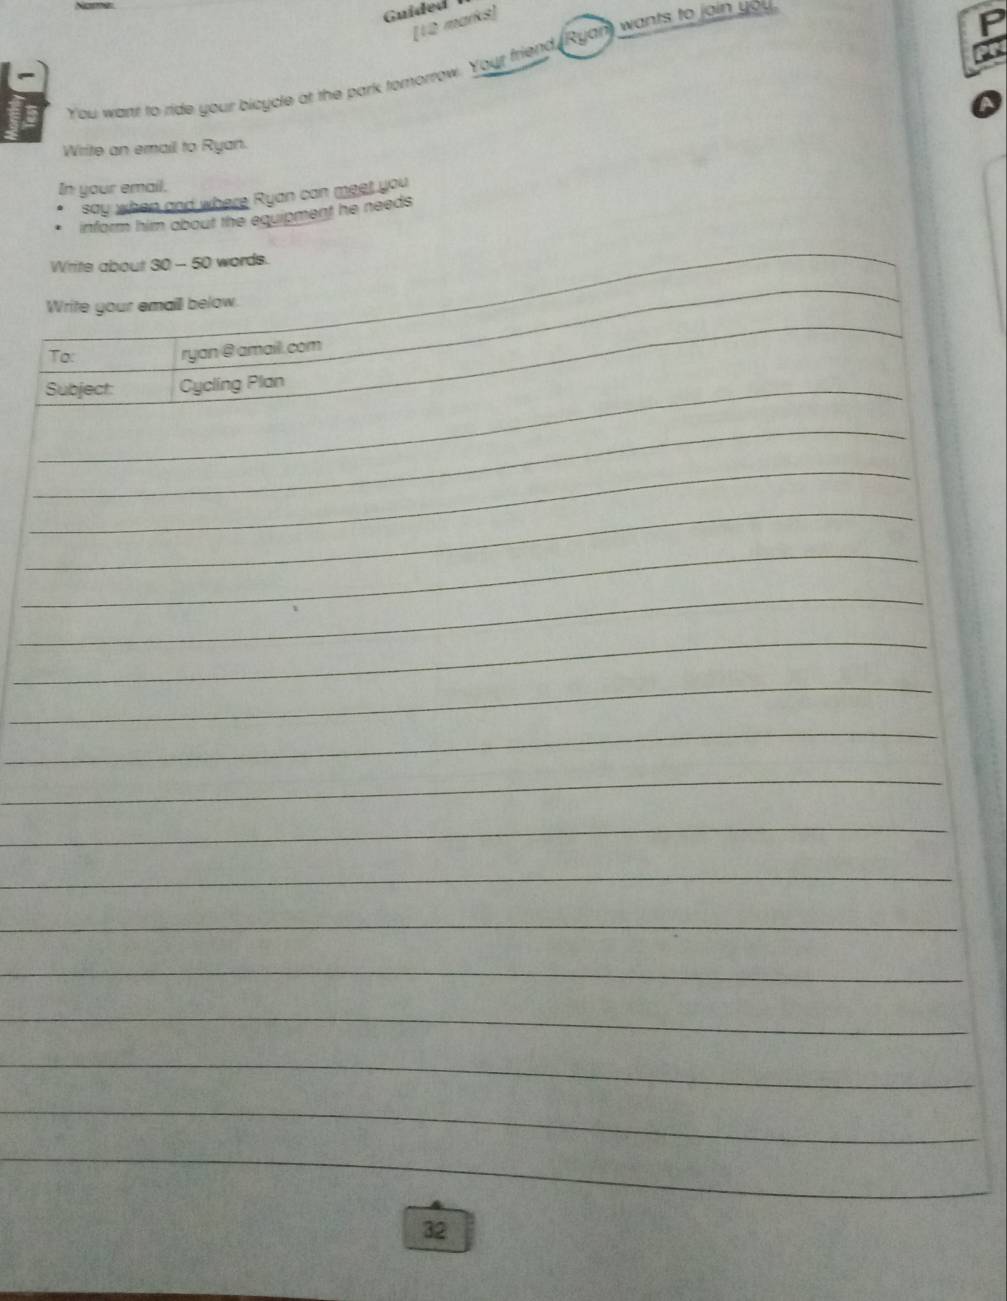 Name:
Guided
[12 marks]
Monthly Test 1
You want to ride your bicycle at the park tomorrow. Your friend, Ryan, wants to join you.
Write an email to Ryan.
In your email,
• say when and where Ryan can meet you
• inform him about the equipment he needs
Write about 30 – 50 words.
Write your email below.
To: ryan@amail.com
Subject: Cycling Plan
32
P
A